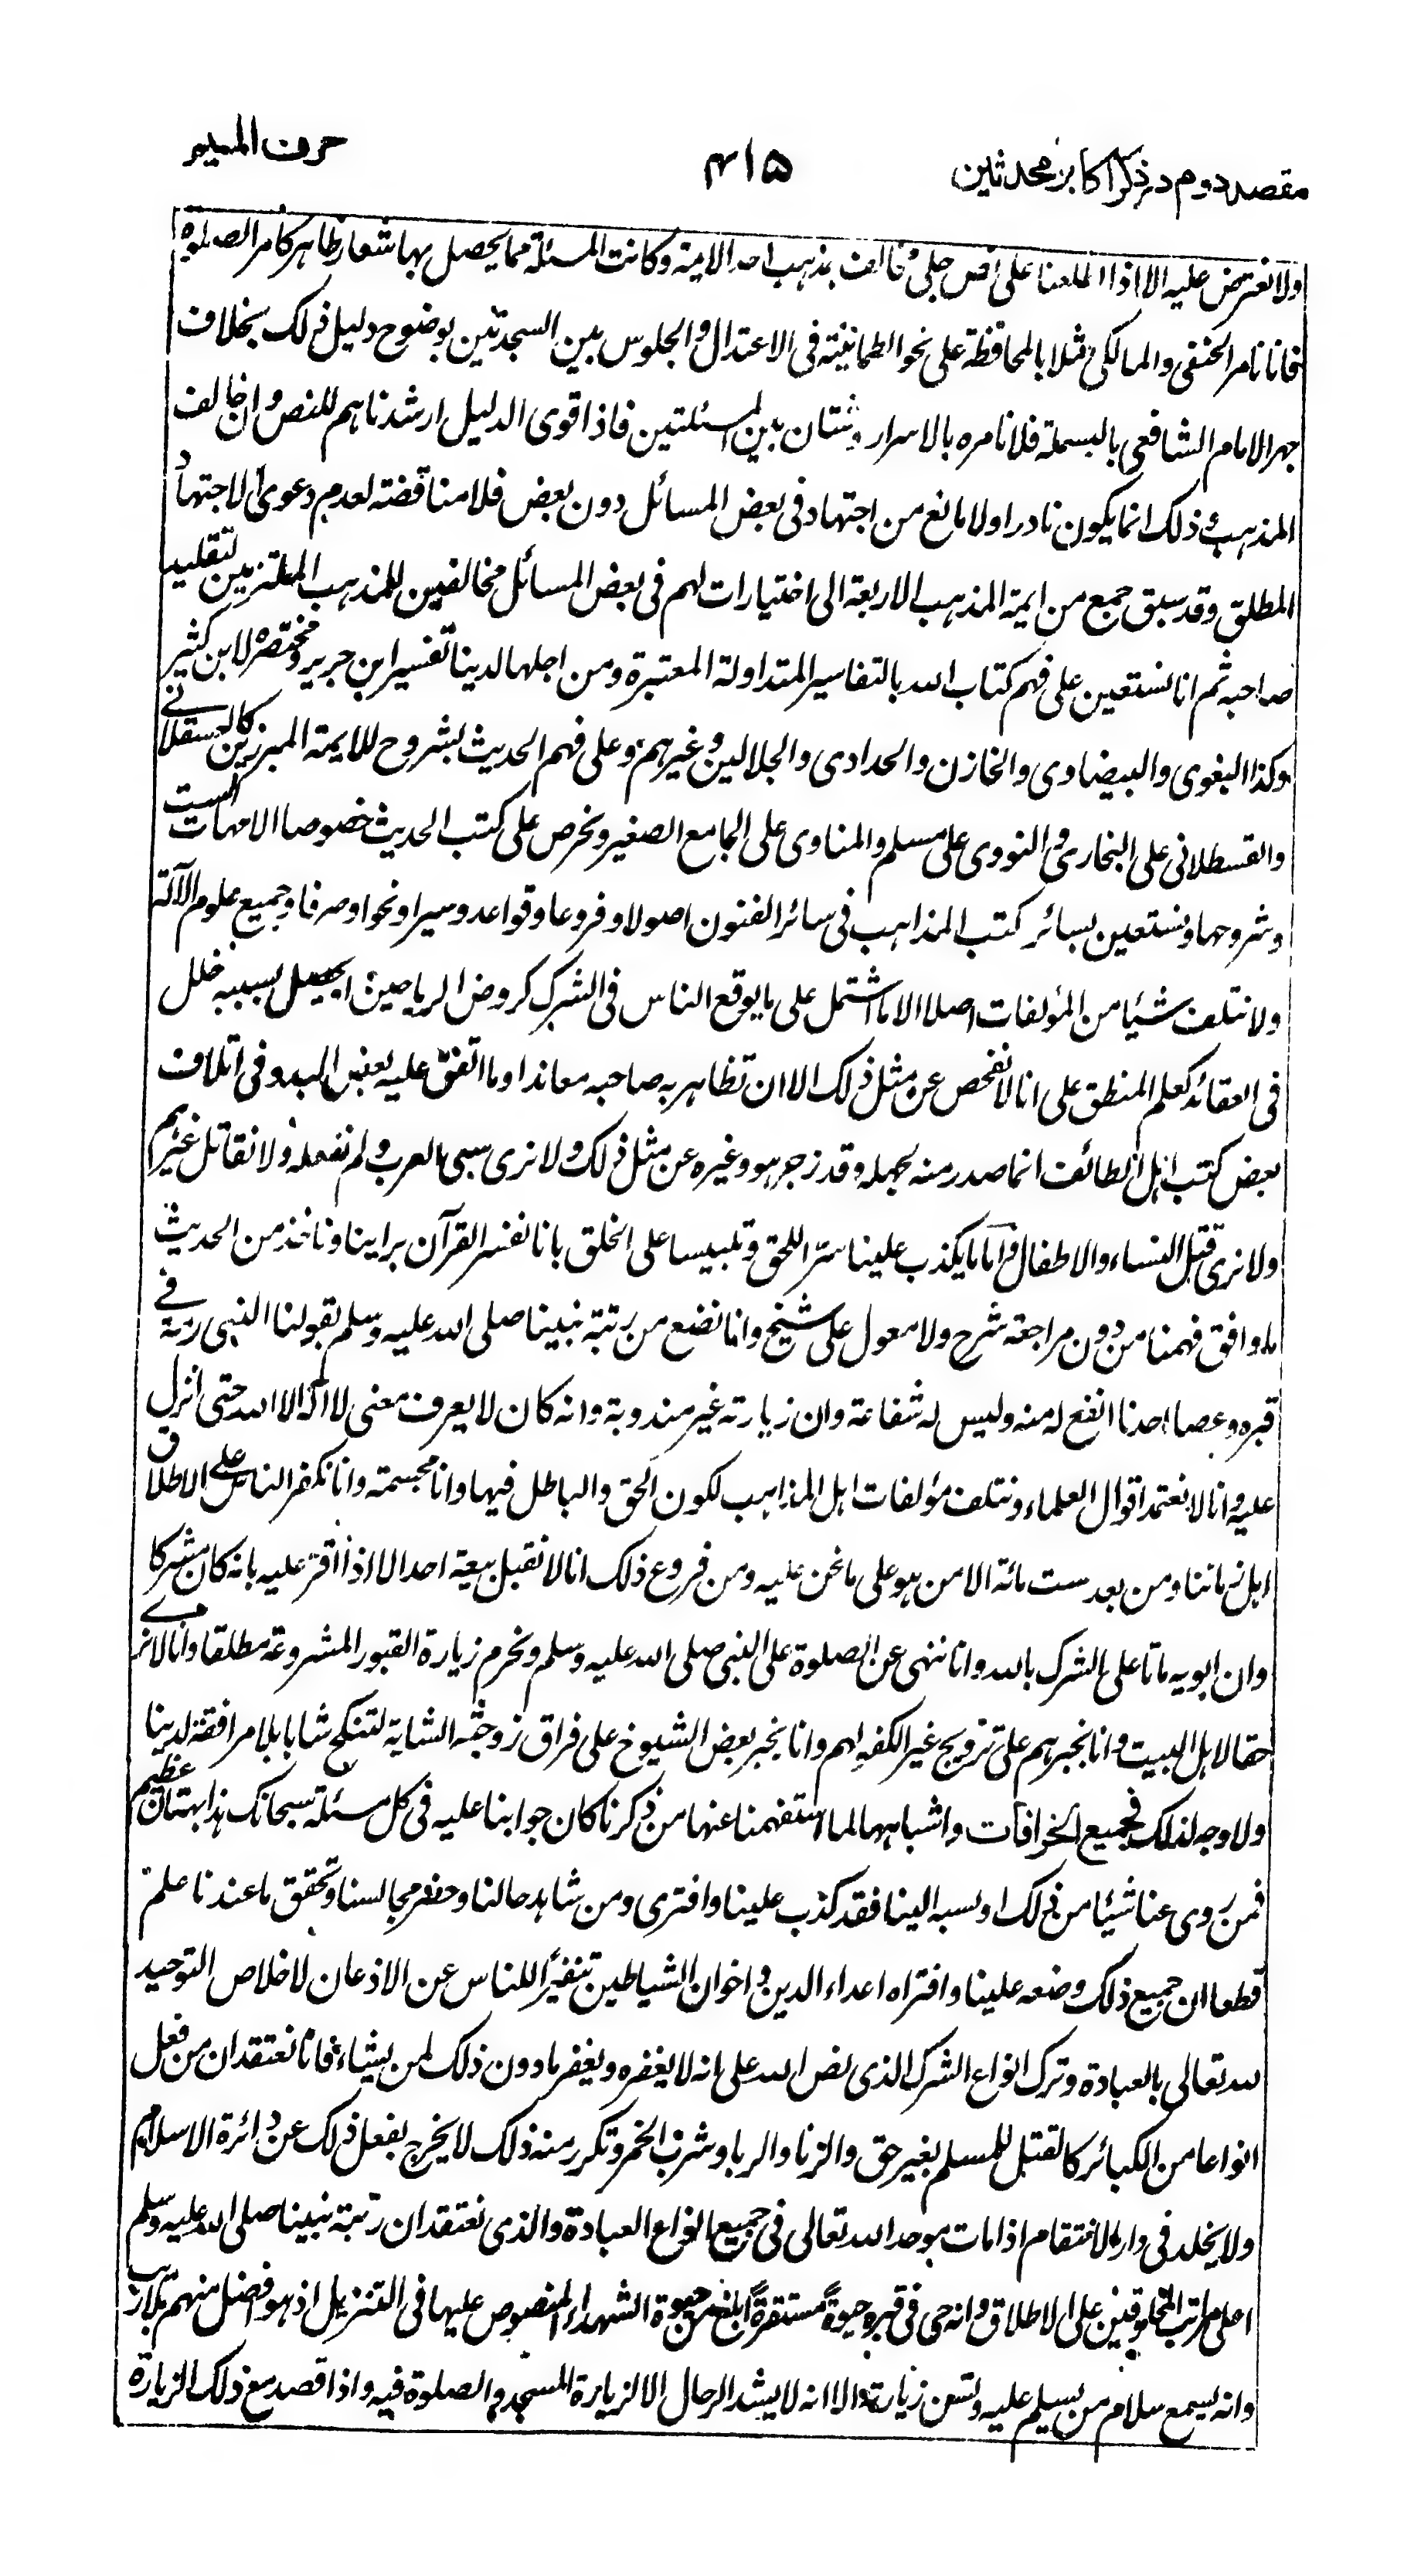 مقصد دوم در ذکر اکابر محدثین
۴۱۵
حرف المیم
ولا نعترض علیه الا اذا اطلعنا علی نص جلی مخالف بمذهب احد الایمة وکانت المسئلة مما یحصل بها شعار ظاهر کامر الصلوة
فانا نامر الحنفی والمالکی مثلا بالمحافظة علی نحو الطمانینة فی الاعتدال والجلوس بین السجدتین بوضوح دلیل ذلک بخلاف
جهر الامام الشافعی بالبسملة فلا نامره بالاسرار وشتان بین المسئلتین فاذا قوی الدلیل ارشدناهم للنص وان خالف
المذهب وذلک انما یکون نادرا ولا مانع من اجتهاد فی بعض المسائل دون بعض فلا مناقضة لعدم دعوی الاجتهاد
المطلق وقد سبق جمع من ایمة المذهب الاربعة الی اختیارات لهم فی بعض المسائل مخالفین للمذهب الملتزمین لتقلید
صاحبه ثم انا نستعین علی فهم کتاب الله بالتفاسیر المتداولة المعتبرة ومن اجلها لدینا تفسیر ابن جریر ومختصره لابن کثیر
وکذا البغوی والبیضاوی والخازن والحدادی والجلالین وغیرهم وعلی فهم الحدیث بشروح للایمة المبرزین کالعسقلانے
والقسطلانی علی البخاری والنووی علی مسلم والمناوی علی الجامع الصغیر ونحرص علی کتب الحدیث خصوصا الامهات الست
وشروحها ونستعین بسائر کتب المذاهب فی سائر الفنون اصولا وفروعا وقواعد وسیرا ونحوا وصرفا وجمیع علوم الآلة
ولا نتلف شیئا من المؤلفات اصلا الا ما اشتمل علی ما یوقع الناس فی الشرک کروض الریاحین او یحصل بسببه خلل
فی العقائد کعلم المنطق علی انا لا نفحص عن مثل ذلک الا ان تظاهر به صاحبه معاندا وما اتفق علیه بعض البدو فی اتلاف
بعض کتب اهل الطائف انما صدر منه بجهله وقد زجر هو وغیره عن مثل ذلک ولا نری سبی العرب ولم نفعله ولا نقاتل غیرهم
ولا نری قتل النساء والاطفال واما ما یکذب علینا سترا للحق وتلبیسا علی الخلق بانا نفسر القرآن براینا وناخذ من الحدیث
ما وافق فهمنا من دون مراجعة شرح ولا معول علی شیخ وانا نضع من رتبة نبینا صلی الله علیه وسلم بقولنا النبی رمة فے
قبره وعصا احدنا انفع له منه ولیس له شفاعة وان زیارته غیر مندوبة وانه کان لا یعرف معنی لا اله الا الله حتی انزل
علیه وانا لا نعتمد اقوال العلماء ونتلف مؤلفات اهل المذاهب لکون الحق والباطل فیها وانا مجسمة وانا نکفر الناس علی الاطلاق
اهل زماننا ومن بعد ست مائة الا من هو علی ما نحن علیه ومن فروع ذلک انا لا نقبل بیعة احد الا اذا اقر علیه بانه کان مشرکا
وان ابویه ماتا علی الشرک بالله وانا ننهی عن الصلوة علی النبی صلی الله علیه وسلم ونحرم زیارة القبور المشروعة مطلقا وانا لا نرے
حقا لاهل البیت وانا نجبرهم علی تزویج غیر الکفو لهم وانا نجبر بعض الشیوخ علی فراق زوجته الشابة لتنکح شابا بلا مرافقة لدینا
ولا وجه لذلک فجمیع الخرافات واشباهها لما استفهمنا عنها من ذکرنا کان جوابنا علیه فی کل مسئلة سبحانک هذا بهتان عظیم
فمن روی عنا شیئا من ذلک او نسبه الینا فقد کذب علینا وافتری ومن شاهد حالنا وحضر مجالسنا وتحقق ما عندنا علم
قطعا ان جمیع ذلک وضعه علینا وافتراه اعداء الدین واخوان الشیاطین تنفیرا للناس عن الاذعان لاخلاص التوحید
لله تعالی بالعبادة وترک انواع الشرک الذی نص الله علی انه لا یغفره ویغفر ما دون ذلک لمن یشاء فانا نعتقد ان من فعل
انواعا من الکبائر کالقتل للمسلم بغیر حق والزنا والربا وشرب الخمر وتکرر منه ذلک لا یخرج بفعل ذلک عن دائرة الاسلام
ولا یخلد فی دار الانتقام اذا مات موحدا لله تعالی فی جمیع انواع العبادة والذی نعتقد ان رتبة نبینا صلی الله علیه وسلم
اعلی مراتب المخلوقین علی الاطلاق وانه حی فی قبره حیوة مستقرة ابلغ من حیوة الشهداء المنصوص علیها فی التنزیل اذ هو افضل منهم بلا ریب
وانه یسمع سلام من یسلم علیه وتسن زیارته الا انه لا یشد الرحال الا لزیارة المسجد والصلوة فیه واذا قصد مع ذلک الزیارة